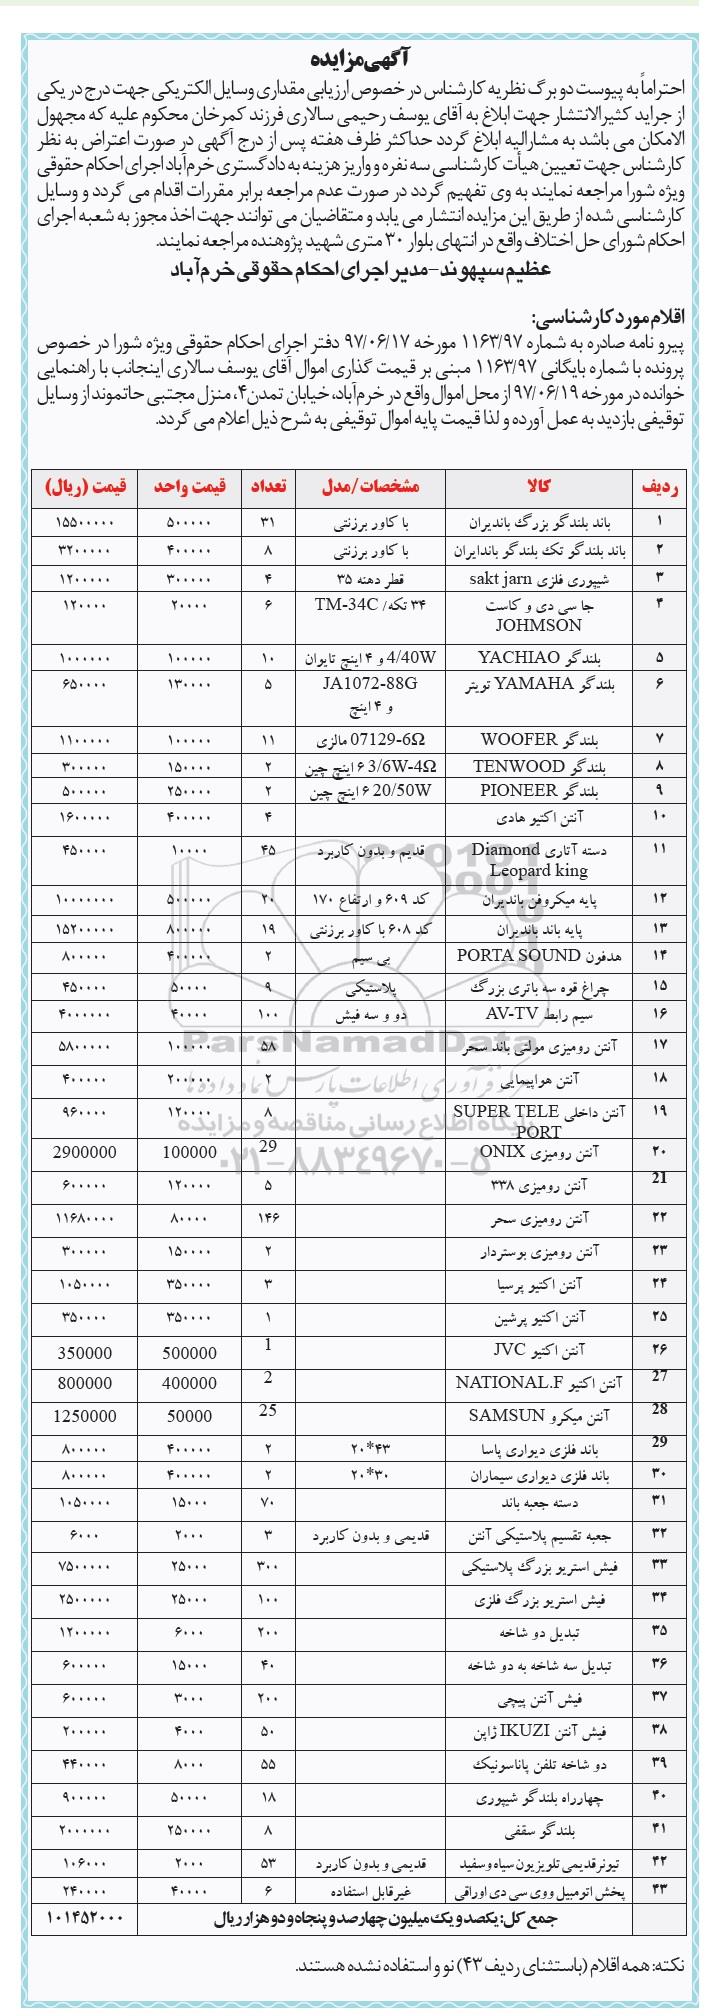 آگهی مزایده
احتراماً به پیوست دو برگ نظریه کارشناس در خصوص ارزیابی مقداری وسایل الکتریکی جهت درج در یکی
از جراید کثیرالانتشار جهت ابلاغ به آقای یوسف رحیمی سالاری فرزند کمرخان محکوم علیه که مجهول
الامکان می باشد به مشارالیه ابلاغ گردد حداکثر ظرف هفته پس از درج آگهی در صورت اعتراض به نظر
کارشناس جهت تعیین هیأت کارشناسی سه نفره و واریز هزینه به دادگستری خرم‌آباد اجرای احکام حقوقی
ویژه شورا مراجعه نمایند به وی تفهیم گردد در صورت عدم مراجعه برابر مقررات اقدام می گردد و وسایل
کارشناسی شده از طریق این مزایده انتشار می یابد و متقاضیان می توانند جهت اخذ مجوز به شعبه اجرای
احکام شورای حل اختلاف واقع در انتهای بلوار ۳۰ متری شهید پژوهنده مراجعه نمایند.
عظیم سپهوند-مدیر اجرای احکام حقوقی خرم‌آباد
اقلام مورد کارشناسی:
پیرو نامه صادره به شماره ۱۱۶۳/۹۷ مورخه ۹۷/۰۶/۱۷ دفتر اجرای احکام حقوقی ویژه شورا در خصوص
پرونده با شماره بایگانی ۱۱۶۳/۹۷ مبنی بر قیمت گذاری اموال آقای یوسف سالاری اینجانب با راهنمایی
خوانده در مورخه ۹۷/۰۶/۱۹ از محل اموال واقع در خرم‌آباد، خیابان تمدن۴، منزل مجتبی حاتموند از وسایل
توقیفی بازدید به عمل آورده و لذا قیمت پایه اموال توقیفی به شرح ذیل اعلام می گردد.
ردیف کالا مشخصات/مدل تعداد قیمت واحد قیمت (ریال)
۱ باند بلندگو بزرگ باندیران با کاور برزنتی ۳۱ ۵۰۰۰۰۰ ۱۵۵۰۰۰۰۰
۲ باند بلندگو تک بلندگو باندایران با کاور برزنتی ۸ ۴۰۰۰۰۰ ۳۲۰۰۰۰۰
۳ شیپوری فلزی sakt jarn قطر دهنه ۳۵ ۴ ۳۰۰۰۰۰ ۱۲۰۰۰۰۰
۴ جا سی دی و کاست ۳۴ تکه/ TM-34C ۶ ۲۰۰۰۰ ۱۲۰۰۰۰
JOHMSON
۵ بلندگو YACHIAO 4/40W و ۴ اینچ تایوان ۱۰ ۱۰۰۰۰۰ ۱۰۰۰۰۰۰
۶ بلندگو YAMAHA تویتر JA1072-88G ۵ ۱۳۰۰۰۰ ۶۵۰۰۰۰
و ۴ اینچ
۷ بلندگو WOOFER 07129-6Ω مالزی ۱۱ ۱۰۰۰۰۰ ۱۱۰۰۰۰۰
۸ بلندگو TENWOOD 3/6W-4Ω ۶ اینچ چین ۲ ۱۵۰۰۰۰ ۳۰۰۰۰۰
۹ بلندگو PIONEER 20/50W ۶ اینچ چین ۲ ۲۵۰۰۰۰ ۵۰۰۰۰۰
۱۰ آنتن اکتیو هادی ۴ ۴۰۰۰۰۰ ۱۶۰۰۰۰۰
۱۱ دسته آتاری Diamond قدیم و بدون کاربرد ۴۵ ۱۰۰۰۰ ۴۵۰۰۰۰
Leopard king
۱۲ پایه میکروفن باندیران کد ۶۰۹ و ارتفاع ۱۷۰ ۲۰ ۵۰۰۰۰۰ ۱۰۰۰۰۰۰۰
۱۳ پایه باند باندیران کد ۶۰۸ با کاور برزنتی ۱۹ ۸۰۰۰۰۰ ۱۵۲۰۰۰۰۰
۱۴ هدفون PORTA SOUND بی سیم ۲ ۴۰۰۰۰۰ ۸۰۰۰۰۰
۱۵ چراغ قوه سه باتری بزرگ پلاستیکی ۹ ۵۰۰۰۰ ۴۵۰۰۰۰
۱۶ سیم رابط AV-TV دو و سه فیش ۱۰۰ ۴۰۰۰۰ ۴۰۰۰۰۰۰
ParsNamadData
۱۷ آنتن رومیزی مولتی باند سحر ۵۸ ۱۰۰۰۰۰ ۵۸۰۰۰۰۰
۱۸ آنتن هواپیمایی ۲ ۲۰۰۰۰۰ ۴۰۰۰۰۰
مرکز فرآوری اطلاعات پارس نماد داده ها
۱۹ آنتن داخلی SUPER TELE ۸ ۱۲۰۰۰۰ ۹۶۰۰۰۰
PORT
پایگاه اطلاع رسانی مناقصه و مزایده
۲۰ آنتن رومیزی ONIX 29 100000 2900000
۰۲۱-۸۸۳۴۹۶۷۰-۵
21 آنتن رومیزی ۳۳۸ ۵ ۱۲۰۰۰۰ ۶۰۰۰۰۰
۲۲ آنتن رومیزی سحر ۱۴۶ ۸۰۰۰۰ ۱۱۶۸۰۰۰۰
۲۳ آنتن رومیزی بوستردار ۲ ۱۵۰۰۰۰ ۳۰۰۰۰۰
۲۴ آنتن اکتیو پرسیا ۳ ۳۵۰۰۰۰ ۱۰۵۰۰۰۰
۲۵ آنتن اکتیو پرشین ۱ ۳۵۰۰۰۰ ۳۵۰۰۰۰
۲۶ آنتن اکتیو JVC 1 500000 350000
27 آنتن اکتیو NATIONAL.F 2 400000 800000
28 آنتن میکرو SAMSUN 25 50000 1250000
29 باند فلزی دیواری پاسا ۴۳*۲۰ ۲ ۴۰۰۰۰۰ ۸۰۰۰۰۰
۳۰ باند فلزی دیواری سیماران ۳۰*۲۰ ۲ ۴۰۰۰۰۰ ۸۰۰۰۰۰
۳۱ دسته جعبه باند ۷۰ ۱۵۰۰۰ ۱۰۵۰۰۰۰
۳۲ جعبه تقسیم پلاستیکی آنتن قدیمی و بدون کاربرد ۳ ۲۰۰۰ ۶۰۰۰
۳۳ فیش استریو بزرگ پلاستیکی ۳۰۰ ۲۵۰۰۰ ۷۵۰۰۰۰۰
۳۴ فیش استریو بزرگ فلزی ۱۰۰ ۲۵۰۰۰ ۲۵۰۰۰۰۰
۳۵ تبدیل دو شاخه ۲۰۰ ۶۰۰۰ ۱۲۰۰۰۰۰
۳۶ تبدیل سه شاخه به دو شاخه ۴۰ ۱۵۰۰۰ ۶۰۰۰۰۰
۳۷ فیش آنتن پیچی ۲۰۰ ۳۰۰۰ ۶۰۰۰۰۰
۳۸ فیش آنتن IKUZI ژاپن ۵۰ ۴۰۰۰ ۲۰۰۰۰۰
۳۹ دو شاخه تلفن پاناسونیک ۵۵ ۸۰۰۰ ۴۴۰۰۰۰
۴۰ چهارراه بلندگو شیپوری ۱۸ ۵۰۰۰۰ ۹۰۰۰۰۰
۴۱ بلندگو سقفی ۸ ۲۵۰۰۰۰ ۲۰۰۰۰۰۰
۴۲ تیونر قدیمی تلویزیون سیاه و سفید قدیمی و بدون کاربرد ۵۳ ۲۰۰۰ ۱۰۶۰۰۰
۴۳ پخش اتومبیل و وی سی دی اوراقی غیرقابل استفاده ۶ ۴۰۰۰۰ ۲۴۰۰۰۰
جمع کل: یکصد و یک میلیون چهارصد و پنجاه و دو هزار ریال ۱۰۱۴۵۲۰۰۰
نکته: همه اقلام (باستثنای ردیف ۴۳) نو و استفاده نشده هستند.